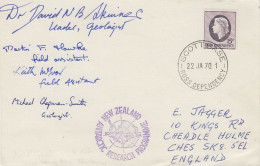 Dr David N B Skinner
Leader, Geologist
Field assistant
Keith
Field Assistant
Michael
Geologist
SCOTT BASE
22 JA 70
ROSS DEPENDENCY
NEW ZEALAND
ANTARCTIC RESEARCH PROGRAMME
E. JAGGER
10 KINGS RD
CHEADLE HULME
CHES SK8 5EL
ENGLAND